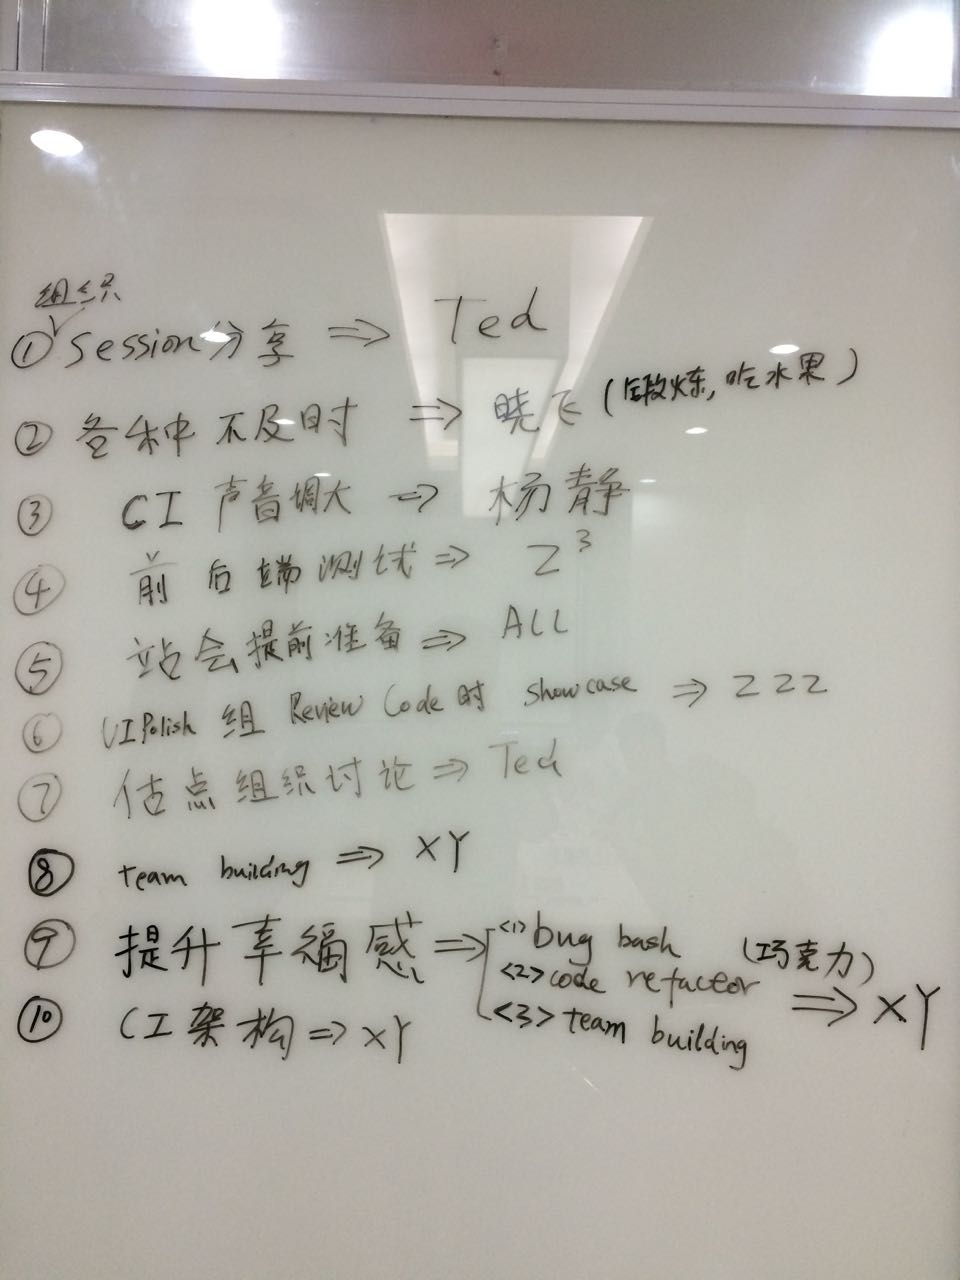 组织
① Session分享 => Ted
② 各种不及时 => 晓飞 (锻炼, 吃水果)
③ CI 声音调大 => 杨静
④ 前后端测试 => Z³
⑤ 站会提前准备 => ALL
⑥ UI Polish 组 Review Code 时 showcase => ZZZ
⑦ 估点组织讨论 => Ted
⑧ team building => XY
⑨ 提升幸福感 => <1> bug bash (巧克力)
<2> code refactor => XY
<3> team building
⑩ CI架构 => XY